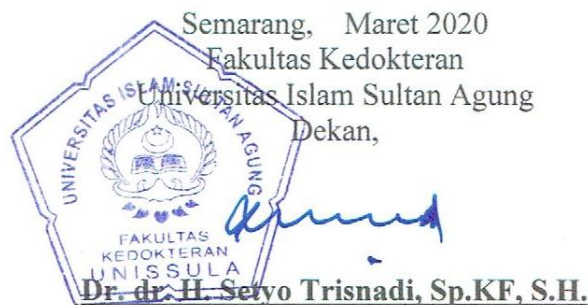 Semarang, Maret 2020
Fakultas Kedokteran
Universitas Islam Sultan Agung
Dekan,
UNIVERSITAS ISLAM SULTAN AGUNG
FAKULTAS
KEDOKTERAN
UNISSULA
Dr. dr. H. Setyo Trisnadi, Sp.KF, S.H.